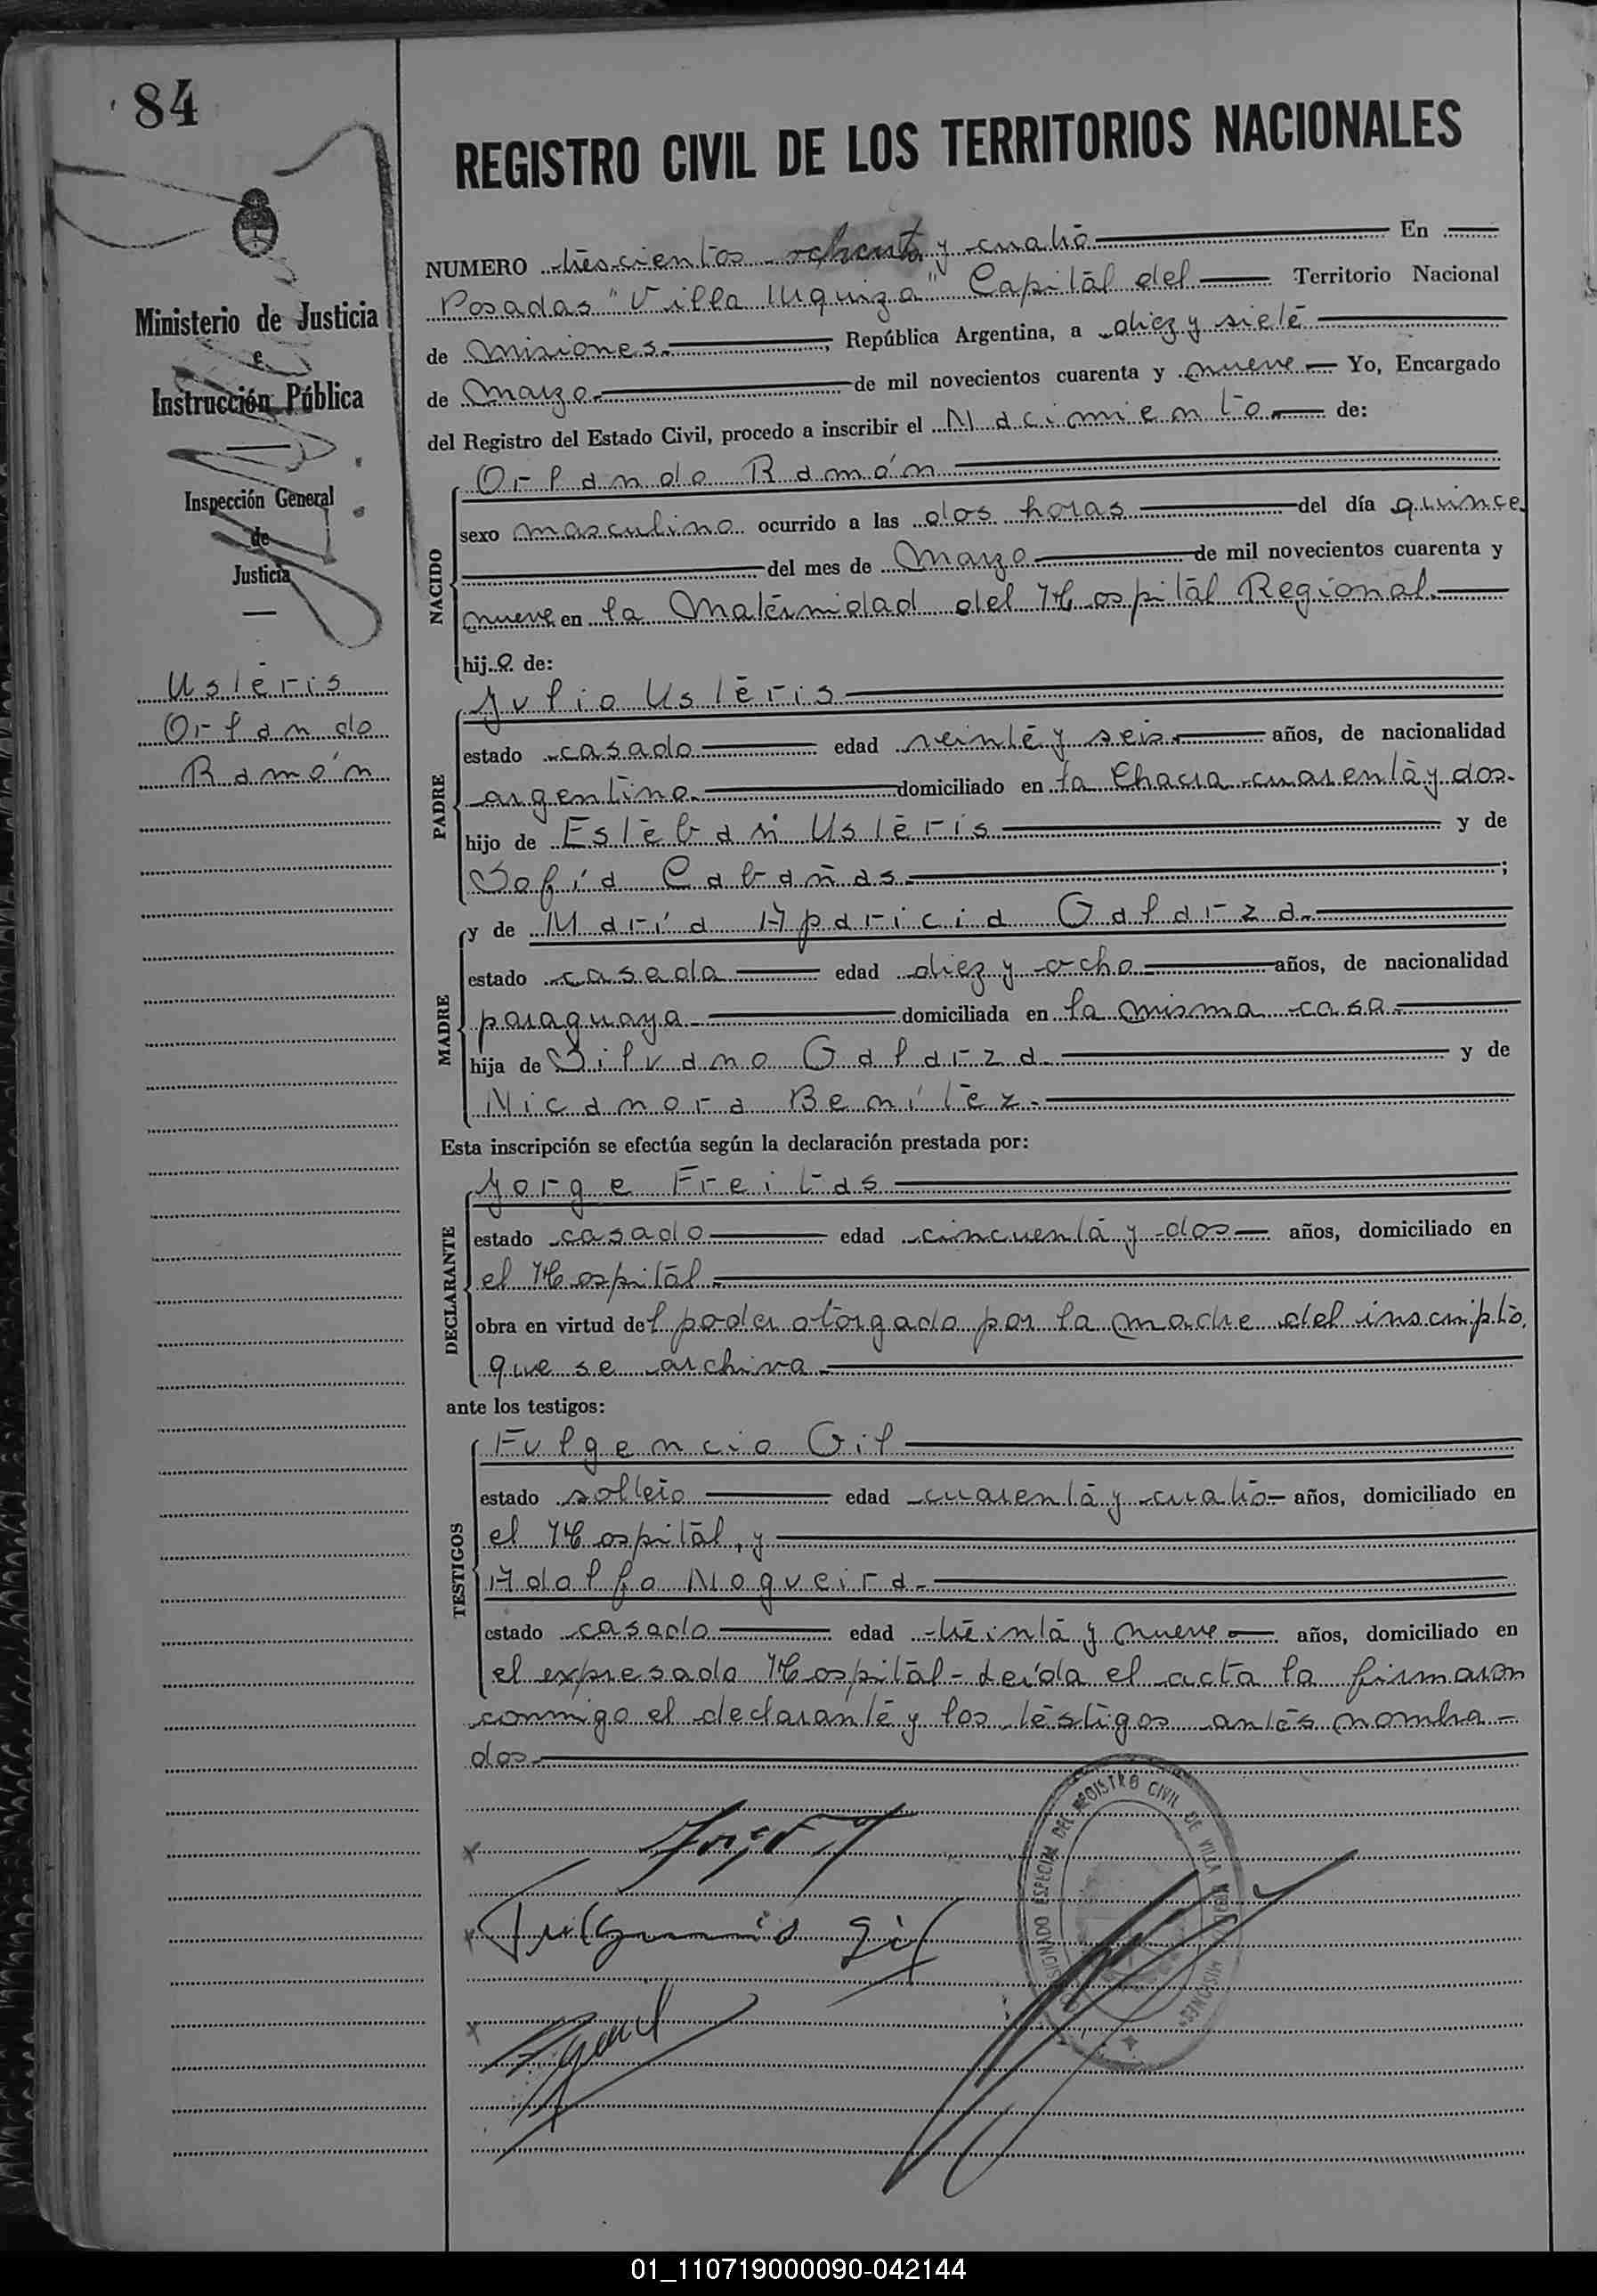 84
REGISTRO CIVIL DE LOS TERRITORIOS NACIONALES
Ministerio de Justicia
e
Instrucción Pública
Inspección General
de
Justicia
Usteris
Orlando
Ramón
NUMERO trescientos ochenta y cuatro En
Posadas "Villa Urquiza" Capital del Territorio Nacional
de Misiones, República Argentina, a diez y siete
de Marzo de mil novecientos cuarenta y nueve Yo, Encargado
del Registro del Estado Civil, procedo a inscribir el Nacimiento de:
NACIDO
Orlando Ramón
sexo masculino ocurrido a las dos horas del día quince
del mes de Marzo de mil novecientos cuarenta y
nueve en la Maternidad del Hospital Regional.
hijo de:
PADRE
Julio Usteris
estado casado edad veinte y seis años, de nacionalidad
argentino domiciliado en la Chacra cuarenta y dos.
hijo de Esteban Usteris y de
Sofía Cabañas ;
MADRE
y de María Aparicia Galarza
estado casada edad diez y ocho años, de nacionalidad
paraguaya domiciliada en la misma casa
hija de Silvano Galarza y de
Nicanora Benítez.
Esta inscripción se efectúa según la declaración prestada por:
DECLARANTE
Jorge Freitas
estado casado edad cincuenta y dos años, domiciliado en
el Hospital
obra en virtud del poder otorgado por la madre del inscripto,
que se archiva
ante los testigos:
TESTIGOS
Fulgencio Gil
estado soltero edad cuarenta y cuatro años, domiciliado en
el Hospital, y
Adolfo Nogueira
estado casado edad treinta y nueve años, domiciliado en
el expresado Hospital - Leída el acta la firmaron
conmigo el declarante y los testigos antes nombra-
dos
Fulgencio Gil
ESPECIAL DEL REGISTRO CIVIL DE VILLA MISIONES
01_110719000090-042144